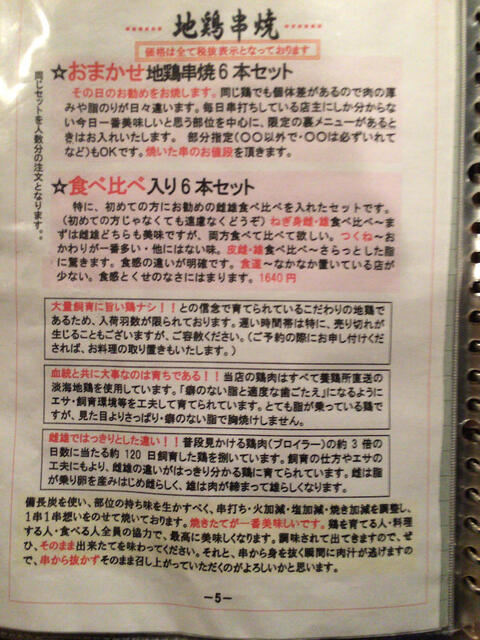 地鶏串焼
価格は全て税抜表示となっております
☆おまかせ地鶏串焼6本セット
その日のお勧めをお焼します。同じ鶏でも個体差があるので肉の厚
みや脂のりが日々違います。毎日串打ちしている店主にしか分からな
い今日一番美味しいと思う部位を中心に、限定の裏メニューがあると
きはお入れいたします。 部分指定(〇〇以外で・〇〇は必ずいれて
など)もOKです。焼いた串のお値段を頂きます。
同じセットを人数分の注文となります。
☆食べ比べ入り6本セット
特に、初めての方にお勧めの雌雄食べ比べを入れたセットです。
(初めての方じゃなくても遠慮なくどうぞ)ねぎ身雌・雄食べ比べ~ま
ずは雌雄どちらも美味ですが、両方食べて比べて欲しい。つくね~お
かわりが一番多い・他にはない味。皮雌・雄食べ比べ~さらっとした脂
に驚きます。食感の違いが明確です。食道~なかなか置いている店が
少ない。食感とくせのなさにはまります。1640円
大量飼育に旨い鶏ナシ!!との信念で育てられているこだわりの地鶏
であるため、入荷羽数が限られております。遅い時間帯は特に、売り切れが
生じることもございますが、ご容赦ください。(ご予約の際にお申し付けくだ
されば、お料理の取り置きもいたします。)
血統と共に大事なのは育ちである!!当店の鶏肉はすべて養鶏所直送の
淡海地鶏を使用しています。「癖のない脂と適度な歯ごたえ」になるように
エサ・飼育環境等を工夫して育てられています。とても脂が乗っている鶏で
すが、見た目よりさっぱり・癖のない脂で胸焼けしません。
雌雄ではっきりとした違い!!普段見かける鶏肉(ブロイラー)の約3倍の
日数に当たる約120日飼育した鶏を捌いています。飼育の仕方やエサの
工夫にもより、雌雄の違いがはっきり分かる鶏に育てられています。雌は脂
が乗り卵を産みはじめ雌らしく、雄は肉が締まって雄らしくなります。
備長炭を使い、部位の持ち味を生かすべく、串打ち・火加減・塩加減・焼き加減を調整し、
1串1串想いをのせて焼いております。焼きたてが一番美味しいです。鶏を育てる人・料理
する人・食べる人全員の協力で、最高に美味しくなります。調味されて出てきますので、ぜ
ひ、そのまま出来たてを味わってください。それと、串から身を抜く瞬間に肉汁が逃げますの
で、串から抜かずそのまま召し上がっていただくのがよろしいかと思います。
-5-